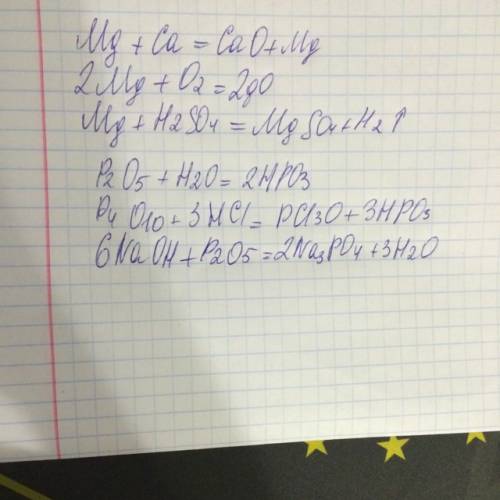 Mg + Ca = CaO + Mg
2Mg + O2 = 2gO
Mg + H2SO4 = MgSO4 + H2↑
P2O5 + H2O = 2HPO3
P4O10 + 3HCl = PCl3O + 3HPO3
6NaOH + P2O5 = 2Na3PO4 + 3H2O